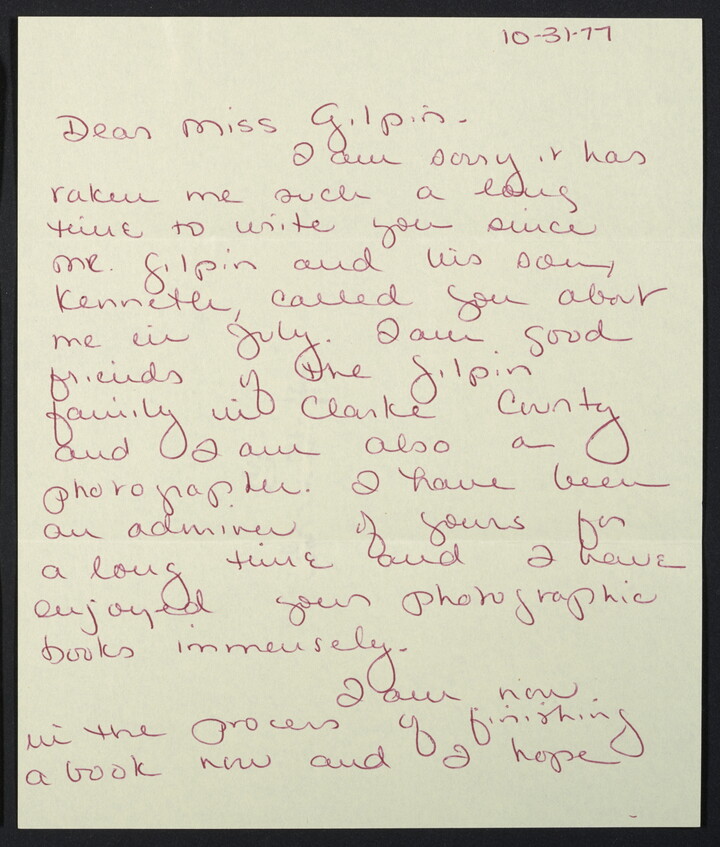 10-31-77
Dear Miss Gilpin.
I am sorry it has
taken me such a long
time to write you since
Mr. Gilpin and his son,
Kenneth, called you about
me in July. I am good
friends of the Gilpin
family in Clarke County
and I am also a
photographer. I have been
an admirer of yours for
a long time and I have
enjoyed your photographic
books immensely.
I am now
in the process of finishing
a book now and I hope